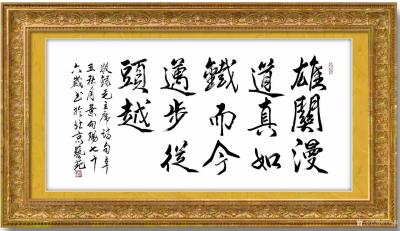 雄關漫
道真如
鐵而今
邁步從
頭越
敬錄毛主席詩句辛
丑秋月葉向陽七十
六歲書於北京藝苑